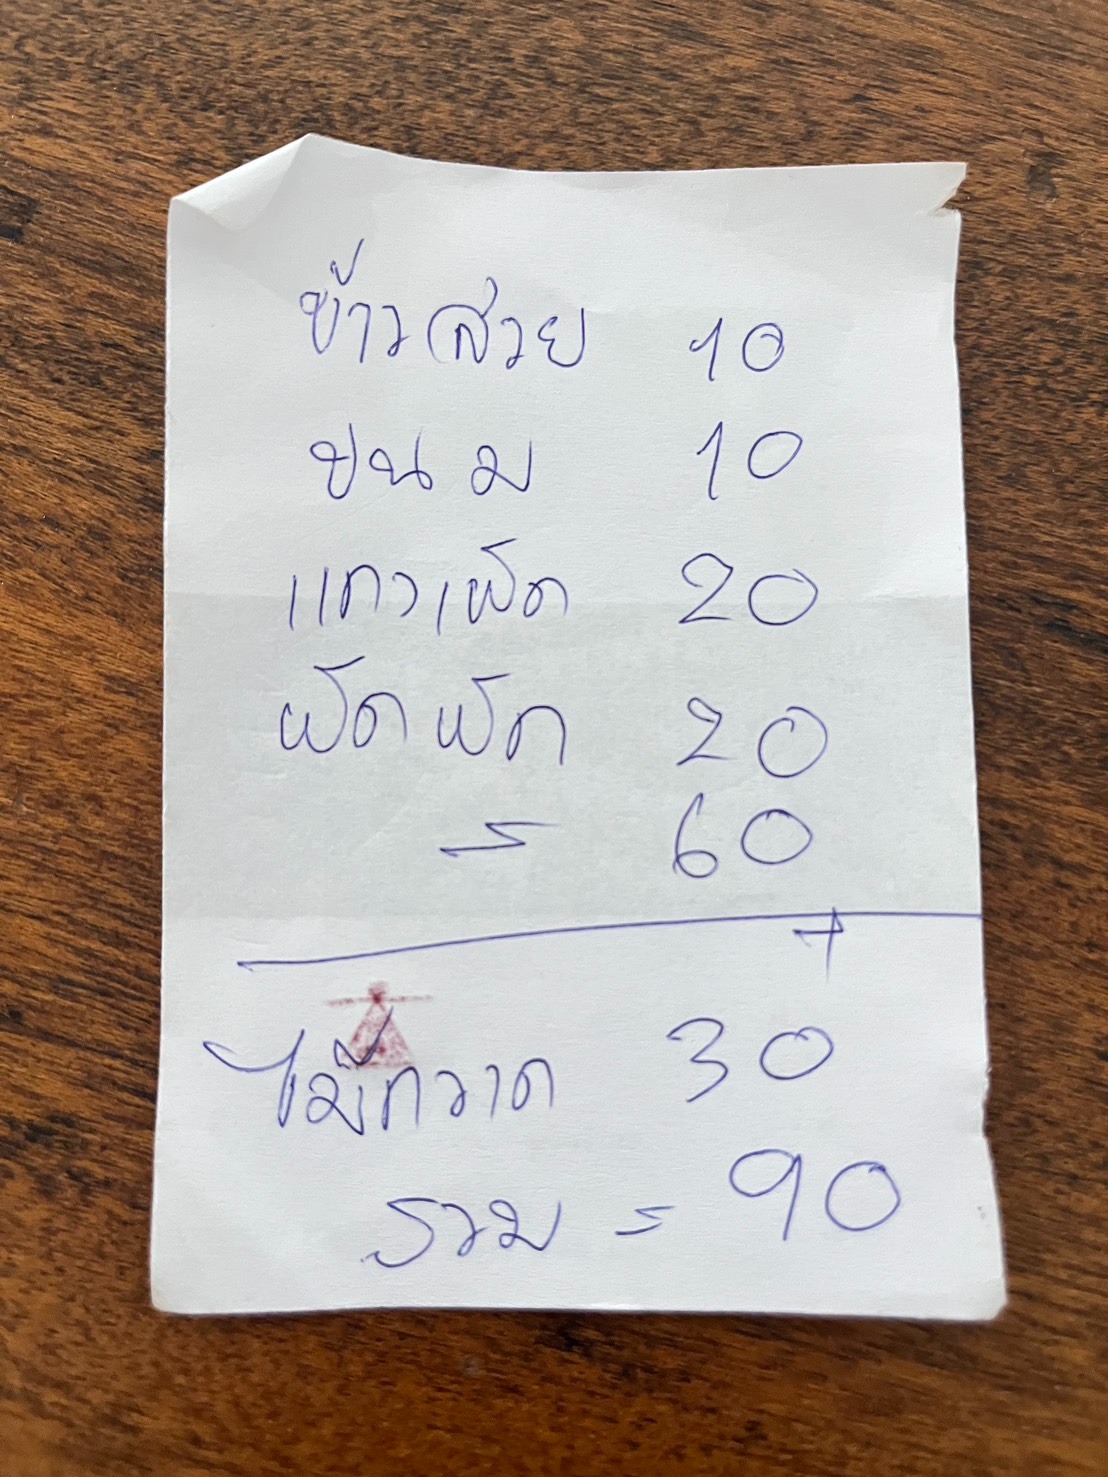 ข้าวสวย 10
ขนม 10
แกงเผ็ด 20
ผัดผัก 20
= 60
+
ไม้กวาด 30
รวม = 90